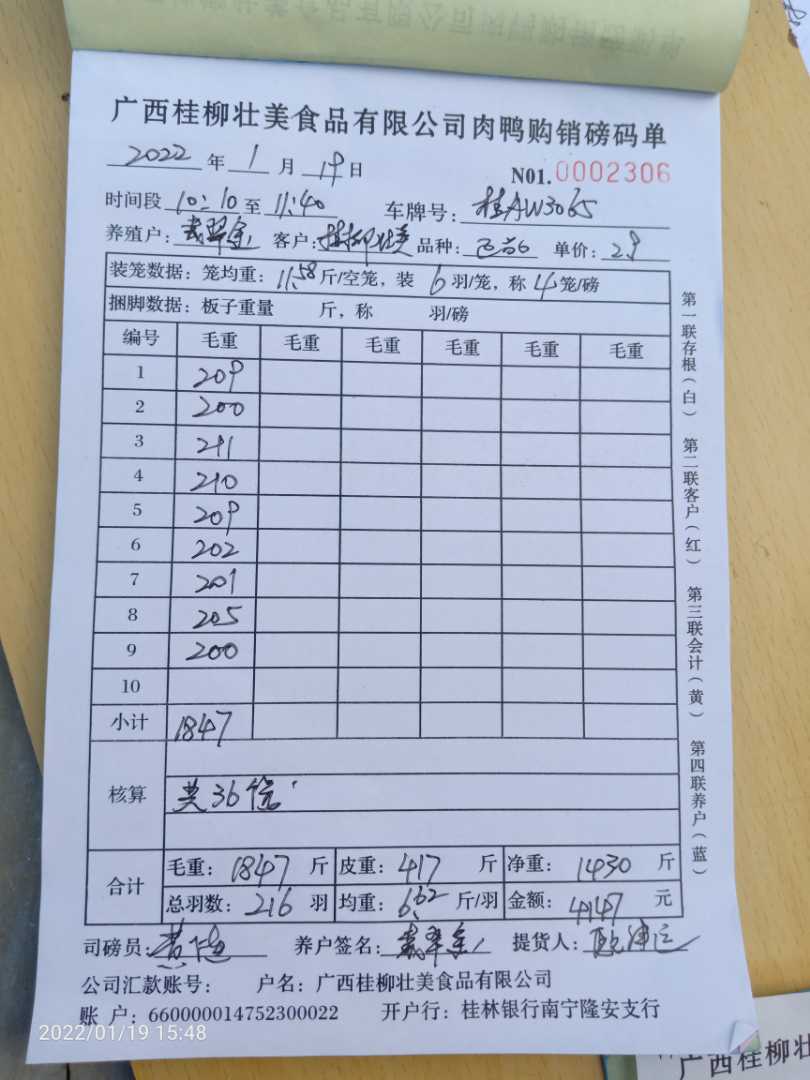 广西桂柳壮美食品有限公司肉鸭购销磅码单
2022 年 1 月 19 日 N01. 0002306
时间段 10:10 至 11:40 车牌号: 桂AW3065
养殖户: 客户: 桂柳壮美 品种: 单价: 2.9
装笼数据: 笼均重: 11.58 斤/空笼, 装 6 羽/笼, 称 4 笼/磅
捆脚数据: 板子重量 斤, 称 羽/磅
编号 毛重 毛重 毛重 毛重 毛重 毛重
1 209
2 200
3 211
4 210
5 209
6 202
7 201
8 205
9 200
10
小计 1847
核算 共36笼
合计 毛重: 1847 斤 皮重: 417 斤 净重: 1430 斤
总羽数: 216 羽 均重: 6.62 斤/羽 金额: 4147 元
司磅员: 养户签名: 提货人:
公司汇款账号: 户名: 广西桂柳壮美食品有限公司
账 户: 660000014752300022 开户行: 桂林银行南宁隆安支行
第一联存根(白) 第二联客户(红) 第三联会计(黄) 第四联养户(蓝)
2022/01/19 15:48
广西桂柳壮